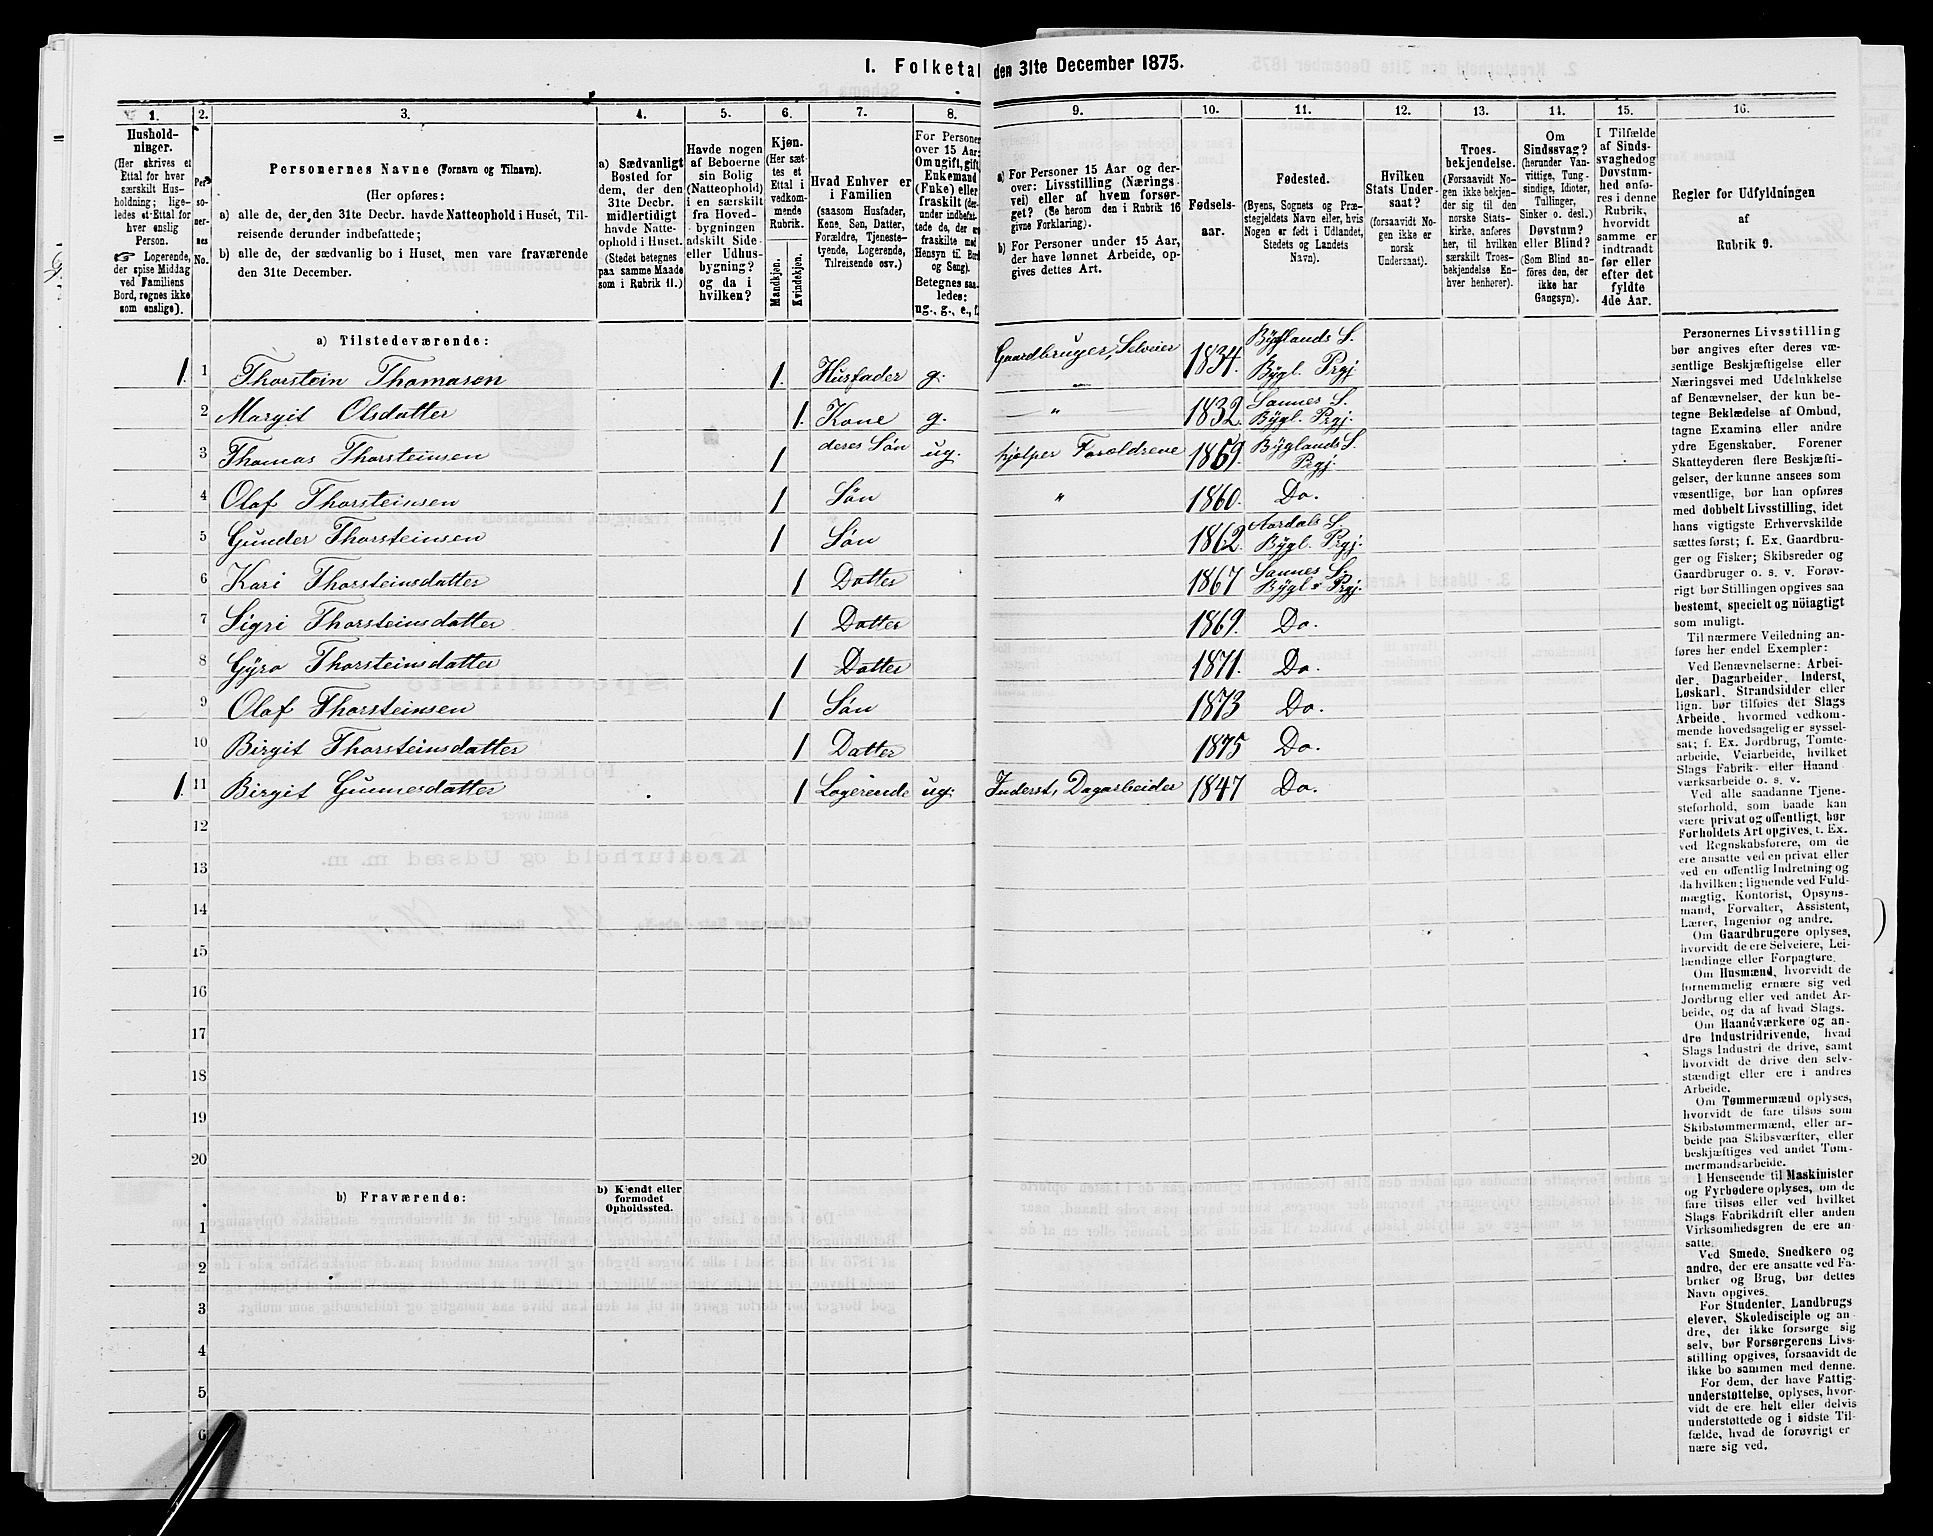 I. Folketal den 31te December 1875.
1. 2. 3. 4. 5. 6. 7. 8. 9. 10. 11. 12. 13. 14. 15. 16.
Hushold-
ninger.
(Her skrives et
Ettal for hver
særskilt Hus-
holdning; lige-
ledes et Ettal for
hver enslig
Person.
☞ Logerende,
der spise Middag
ved Familiens
Bord, regnes ikke
som enslige).
Per-
so-
ner-
nes
No.
Personernes Navne (Fornavn og Tilnavn).
(Her opføres:
a) alle de, der den 31te Decbr. havde Natteophold i Huset, Til-
reisende derunder indbefattede;
b) alle de, der sædvanlig bo i Huset, men vare fraværende
den 31te December.
a) Sædvanligt
Bosted for
dem, der den
31te Decbr.
midlertidigt
havde Natte-
ophold i Huset.
(Stedet betegnes
paa samme Maade
som i Rubrik 11.)
Havde nogen
af Beboerne
sin Bolig
(Natteophold)
i en særskilt
fra Hoved-
bygningen
adskilt Side-
eller Udhus-
bygning?
og da i
hvilken?
Kjøn.
(Her sæt-
tes et
Ettal i
vedkom-
mende
Rubrik.
Mandkjøn.
Kvindekjøn.
Hvad Enhver er
i Familien
(saasom Husfader,
Kone, Søn, Datter,
Forældre, Tjeneste-
tyende, Logerende,
Tilreisende osv.)
For Personer
over 15 Aar:
Om ugift, gift,
Enkemand
(Enke) eller
fraskilt
Betegnes saa-
ledes:
ug., g., e., f.
a) For Personer 15 Aar og der-
over: Livsstilling (Nærings-
vei) eller af hvem forsør-
get? (Se herom den i Rubrik 16
givne Forklaring).
b) For Personer under 15 Aar,
der have lønnet Arbeide, op-
gives dettes Art.
Fødsels-
aar.
Fødested.
(Byens, Sognets og Præ-
stegjeldets Navn eller, hvis
Nogen er født i Udlandet,
Stedets og Landets
Navn).
Hvilken
Stats Under-
saat?
(forsaavidt No-
gen ikke er
norsk
Undersaat).
Troes-
bekjendelse.
(Forsaavidt No-
gen ikke bekjen-
der sig til den
norske Stats-
kirke, anføres
her, til hvilken
særskilt Troes-
bekjendelse En-
hver henhører).
Om
Sindssvag?
(herunder Van-
vittige, Tung-
sindige, Idioter,
Tullinger,
Sinker o. desl.)
Døvstum?
eller Blind?
(Som Blind an-
føres den, der
ikke har
Gangsyn).
I Tilfælde
af Sinds-
svaghed og
Døvstum-
hed anfø-
res i denne
Rubrik,
hvorvidt
samme er
indtraadt
før eller
efter det
fyldte
4de Aar.
Regler for Udfyldningen
af
Rubrik 9.
a) Tilstedeværende:
1. 1 Thorstein Thomasen 1. Husfader g. Gaardbruger, Selveier 1834. Byglands S. Bygl. Prgj
2 Margit Olsdatter 1. Kone g. — " 1832. Sannes S. Bygl. Prgj.
3 Thomas Thorsteinsen 1 deres Søn ug. hjelper Forældrene 1859. Byglands S. Prgj.
4 Olaf Thorsteinsen 1 Søn " 1860. Do.
5 Gunder Thorsteinsen 1 Søn 1862. Aardals S. Bygl. Prgj.
6 Kari Thorsteinsdatter 1 Datter 1867 Sannes S. Bygls Prgj.
7 Sigri Thorsteinsdatter 1 Datter 1869. Do.
8 Gyro Thorsteinsdatter 1 Datter 1871. Do.
9 Olaf Thorsteinsen 1 Søn 1873 Do.
10 Birgit Thorsteinsdatter 1 Datter 1875 Do.
1. 11 Birgit Gunnersdatter 1 Logerende ug. Inderst, Dagarbeider 1847 Do.
12
13
14
15
16
17
18
19
20
b) Fraværende:
b) Kjendt eller
formodet
Opholdssted.
1
2
3
4
5
6
Personernes Livsstilling
bør angives efter deres væ-
sentlige Beskjæftigelse eller
Næringsvei med Udelukkelse
af Benævnelser, der kun be-
tegne Beklædelse af Ombud,
tagne Examina eller andre
ydre Egenskaber. Forener
Skatteyderen flere Beskjæfti-
gelser, der kunne ansees som
væsentlige, bør han opføres
med dobbelt Livsstilling, idet
hans vigtigste Erhvervskilde
sættes først; f. Ex. Gaardbru-
ger og Fisker; Skibsreder og
Gaardbruger o. s. v. Forøv-
rigt bør Stillingen opgives saa
bestemt, specielt og nøiagtigt
som muligt.
Til nærmere Veiledning an-
føres her endel Exempler:
Ved Benævnelserne: Arbei-
der, Dagarbeider, Inderst,
Løskarl, Strandsidder eller
lign. bør tilføies det Slags
Arbeide, hvormed vedkom-
mende hovedsagelig er syssel-
sat; f. Ex. Jordbrug, Tomte-
arbeide, Veiarbeide, hvilket
Slags Fabrik- eller Haand
værksarbeide o. s. v.
Ved alle saadanne Tjene-
steforhold, som baade kan
være privat og offentligt, bør
Forholdets Art opgives, t. Ex.
ved Regnskabsførere, om de
ere ansatte ved en privat eller
ved en offentlig Indretning og
da hvilken; lignende ved Fuld-
mægtig, Kontorist, Opsyns-
mand, Forvalter, Assistent,
Lærer, Ingeniør og andre.
Om Gaardbrugere oplyses,
hvorvidt de ere Selveiere, Lei-
lændinge eller Forpagtere.
Om Husmænd, hvorvidt de
fornemmelig ernære sig ved
Jordbrug eller ved andet Ar-
beide, og da af hvad Slags.
Om Haandværkere og an-
dre Industridrivende, hvad
Slags Industri de drive, samt
hvorvidt de drive den selv-
stændigt eller ere i andres
Arbeide.
Om Tømmermænd oplyses,
hvorvidt de fare tilsøs som
Skibstømmermænd, eller ar-
beide paa Skibsværfter, eller
beskjæftiges ved andet Tøm-
mermandsarbeide.
I Henseende til Maskinister
og Fyrbødere oplyses, om de
fare tilsøs eller ved hvilket
Slags Fabrikdrift eller anden
Virksomhedsgren de ere an-
satte.
Ved Smede, Snedkere og
andre, der ere ansatte ved Fa-
briker og Brug, bør dettes
Navn opgives.
For Studenter, Landbrugs
elever, Skoledisciple og an-
dre, der ikke forsørge sig
selv, bør Forsørgerens Livs-
stilling opgives, forsaavidt de
ikke bo sammen med denne.
For dem, der have Fattig-
understøttelse, oplyses, hvor-
vidt de ere helt eller delvis
understøttede og i sidste Til-
fælde, hvad de forøvrigt er
nære sig ved.